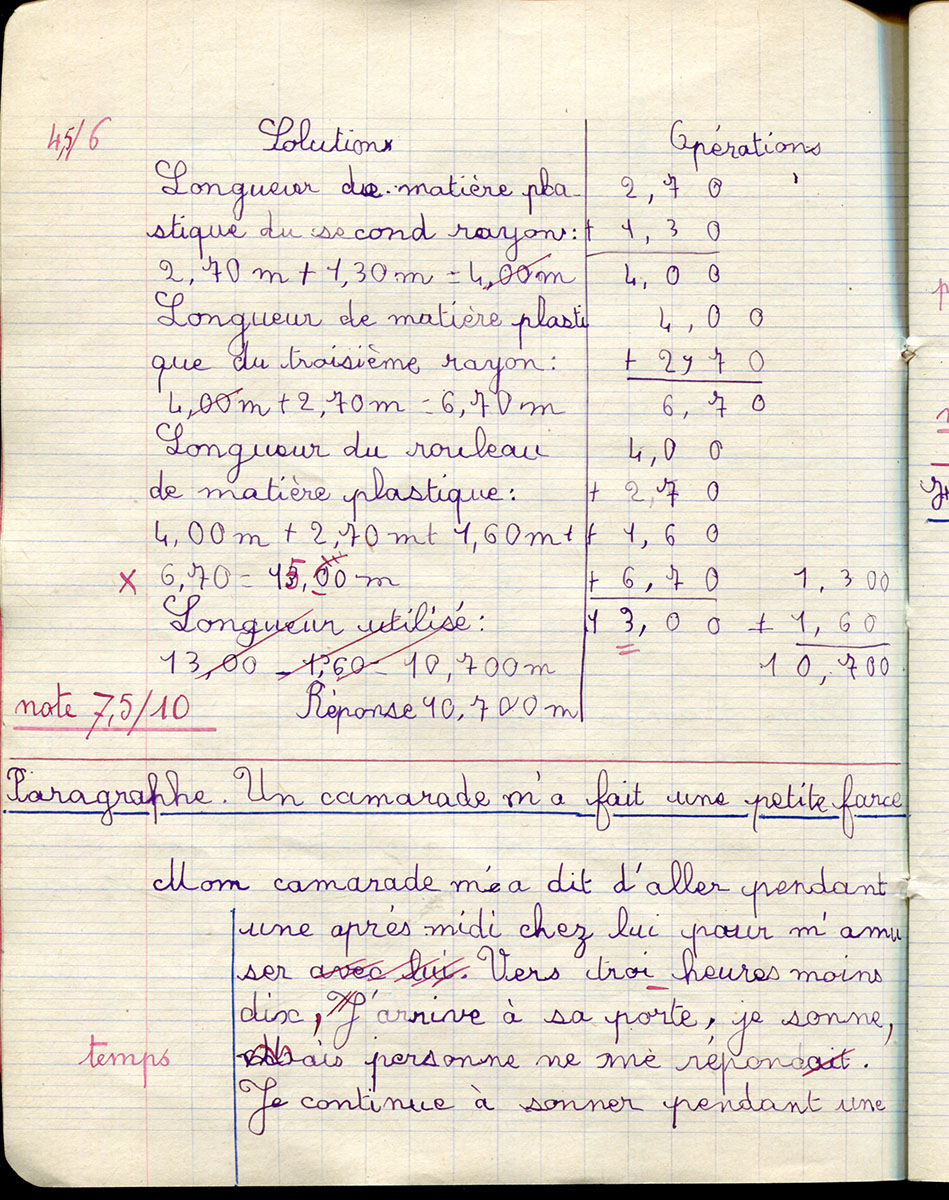 4,5/6
Solutions
Opérations
Longueur de matière pla-
2,70
stique du second rayon:
+ 1,30
2,70 m + 1,30 m = 4,00 m
4,00
Longueur de matière plasti
4,00
que du troisième rayon:
+ 2,70
4,00 m + 2,70 m = 6,70 m
6,70
Longueur du rouleau
4,00
de matière plastique:
+ 2,70
4,00 m + 2,70 m + 1,60 m +
+ 1,60
x 6,70 = 15,00 m
+ 6,70
1,300
Longueur utilisé:
13,00
+ 1,60
13,00 - 1,60 = 10,700 m
10,700
note 7,5/10
Réponse 10,700 m
Paragraphe. Un camarade m'a fait une petite farce
Mon camarade m'a dit d'aller pendant
une après midi chez lui pour m'amu
ser avec lui. Vers troi heures moins
dix, J'arrive à sa porte, je sonne,
temps
mais personne ne me répondait.
Je continue à sonner pendant une